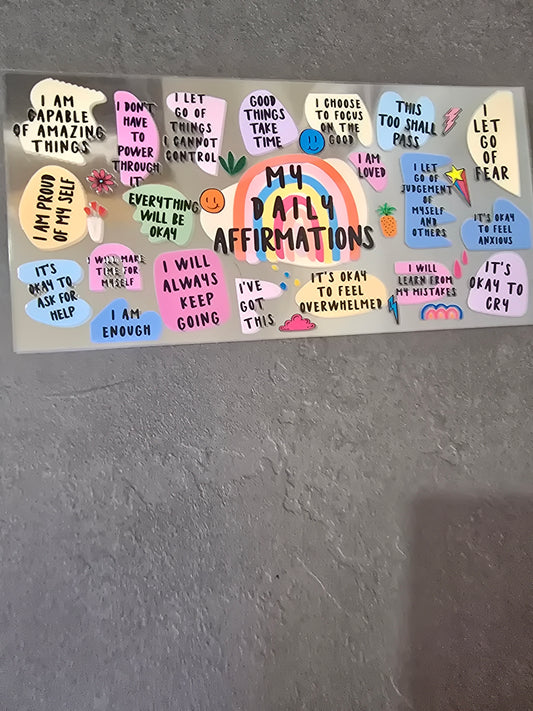 I AM
CAPABLE
OF AMAZING
THINGS
I DON'T
HAVE
TO
POWER
THROUGH
IT
I LET
GO OF
THINGS
I CANNOT
CONTROL
GOOD
THINGS
TAKE
TIME
I CHOOSE
TO FOCUS
ON THE
GOOD
THIS
TOO SHALL
PASS
I
LET
GO
OF
FEAR
I AM PROUD
OF MY SELF
EVERYTHING
WILL BE
OKAY
MY
DAILY
AFFIRMATIONS
I AM
LOVED
I LET
GO OF
JUDGEMENT
OF
MYSELF
AND
OTHERS
IT'S OKAY
TO FEEL
ANXIOUS
IT'S
OKAY TO
ASK FOR
HELP
I WILL MAKE
TIME FOR
MYSELF
I AM
ENOUGH
I WILL
ALWAYS
KEEP
GOING
I'VE
GOT
THIS
IT'S OKAY
TO FEEL
OVERWHELMED
I WILL
LEARN FROM
MY MISTAKES
IT'S
OKAY TO
CRY